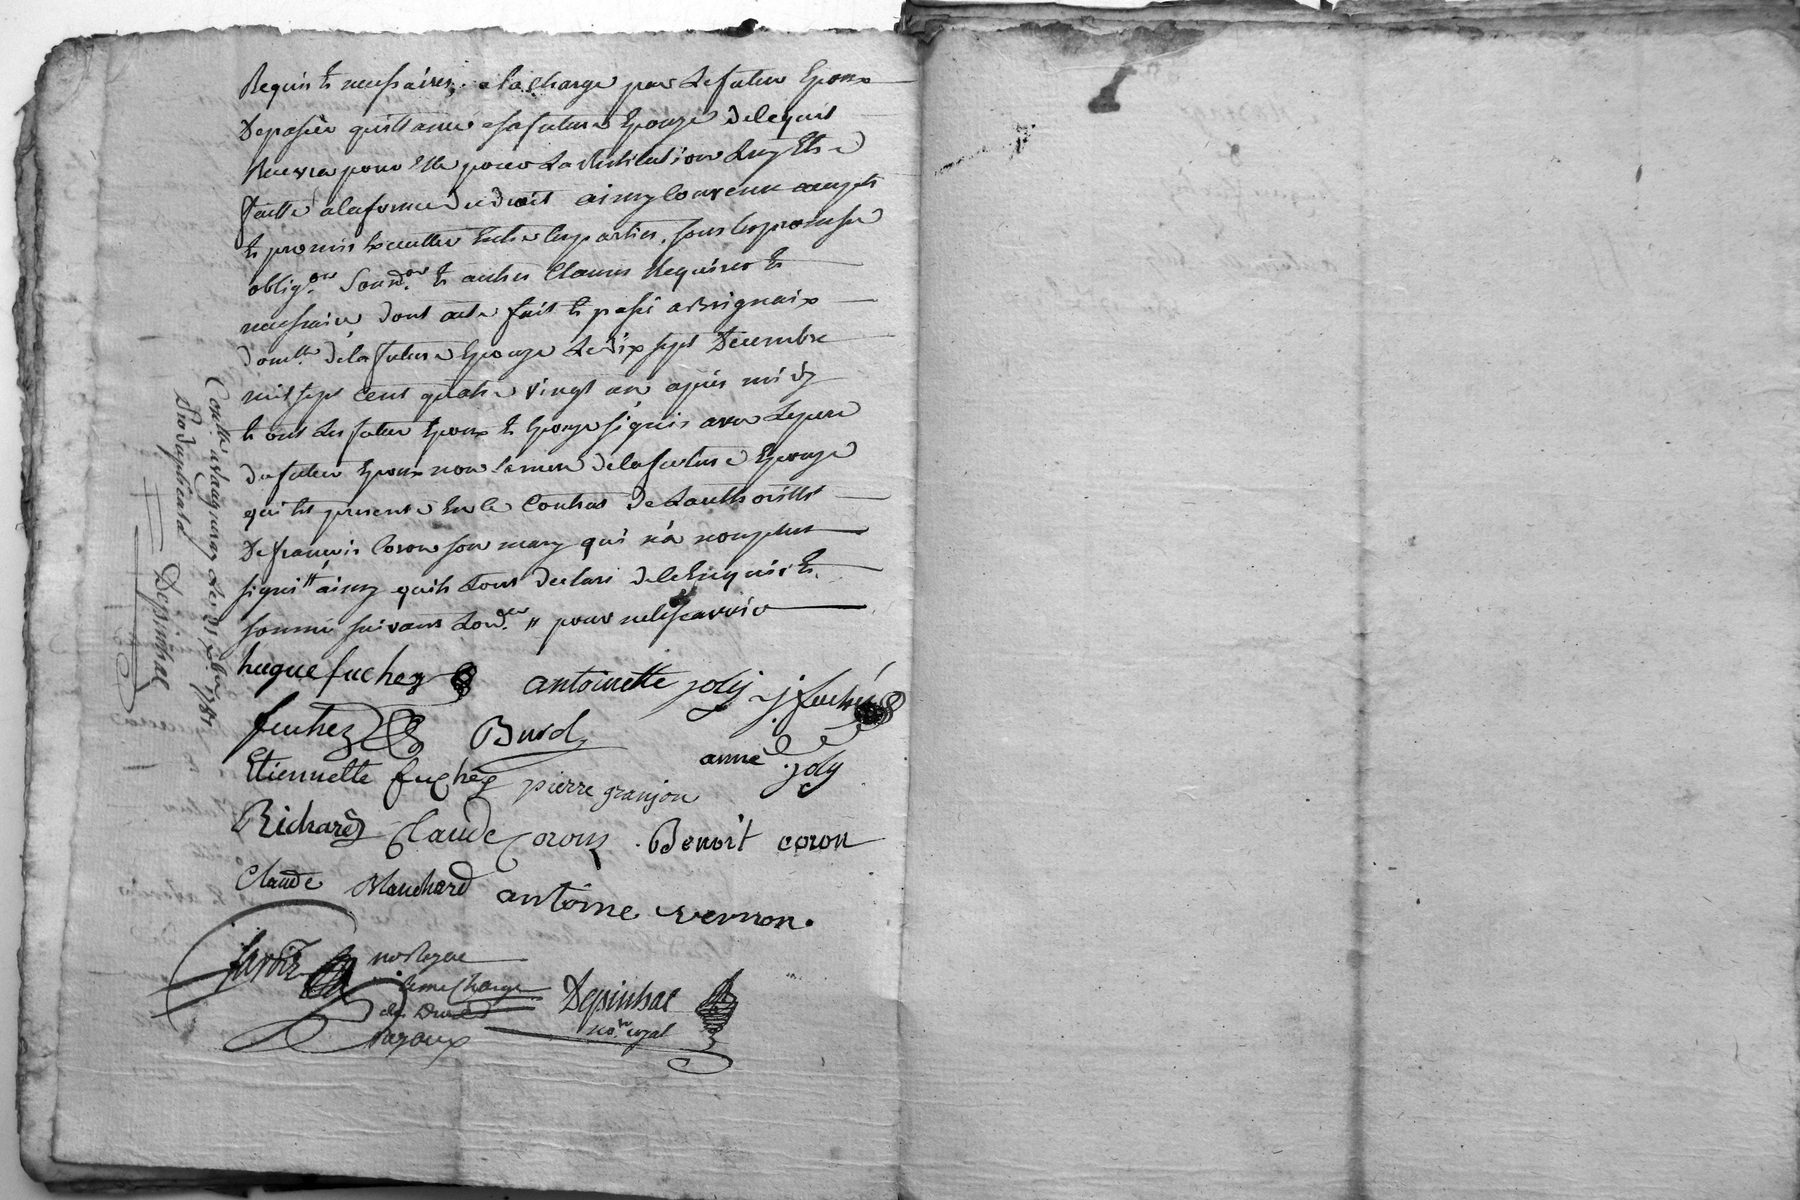 Requis et necessaires, a la charge par le futur Epoux
De passer quittance a sa future Epouze de le quil
Recevra pour Elle pour la Restitution luy Etre
faitte a la forme du droit ainsy convenu accepté
et promis Executter Entre les parties, sous les promesse
oblig.on Soum.on et autres Clauses Requises et
necessaire, dont acte fait et passé a Brignaix
domlle de la future Epouze Le dix sept Decembre
mil sept cent quatre vingt un après midy
et ont les futur Epoux et Epouze signés avec le pere
du futur Epoux non la mere de la future Epouze
qui est presente En le Contrat de l'authoritté
De francois Coron son mary qui n'a non plus
signé " ainsy quils l'ont declaré de le Enquis et
sommé suivant l'ord.ce " pour ne le scavoir
hugue fuchez antoinette joly j fuchez
fuchez Burd anne joly
Etiennette fuchez pierre granjon
Richard Claude Coron Benoit coron
Claude Blanchard antoine vernon.
no Royal
Depinhac
no.re royal
Con.lle a Vaugneray le 31 xbre 1781
Pro duplicata Depinhac